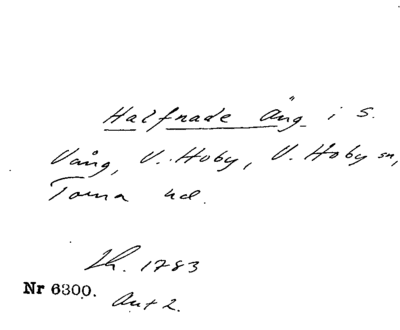 Halfnade Äng i S.
Vång, V. Hoby, V. Hoby sn,
Torna hd.
Lh. 1783
Nr 6300. Ant 2.